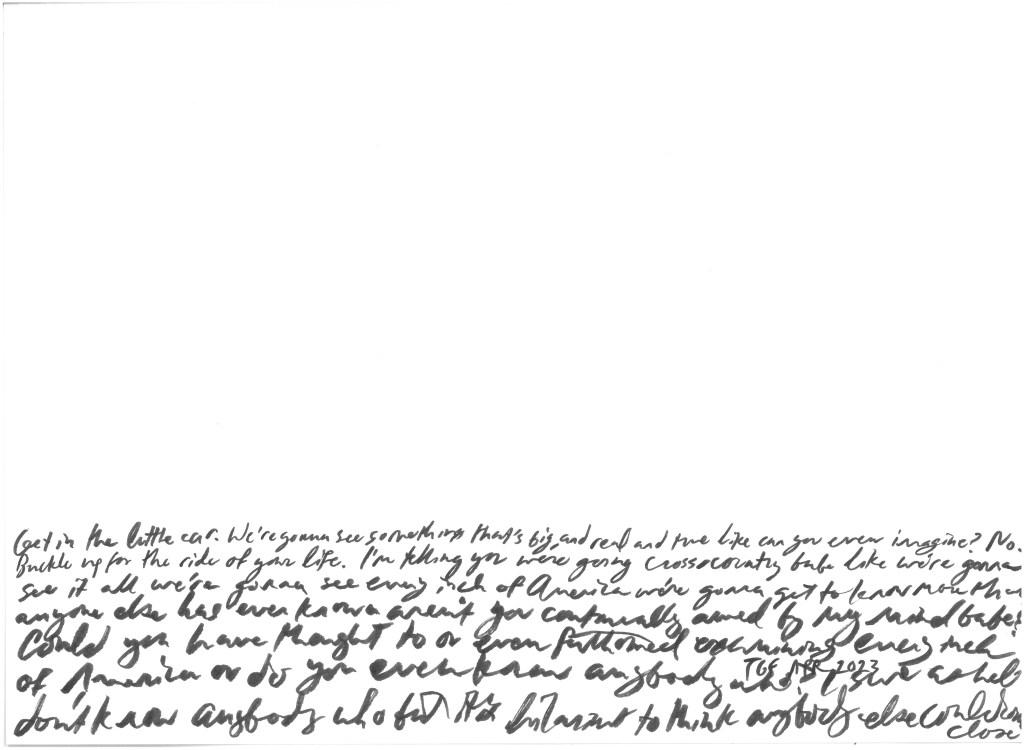 Get in the little car. We're gonna see something that's big, and real and true like can you even imagine? No.
Buckle up for the ride of your life. I'm telling you we're going crossocountry babe like we're gonna
see it all we're gonna see every inch of America we're gonna get to know more than
anyone else has ever known aren't you continually awed by my mind babe?
Could you have thought to or even fathomed examining every inch
of America or do you even know anybody who I sure as hell
TGF APR 2023
don't know anybody who to think anybody else could
close